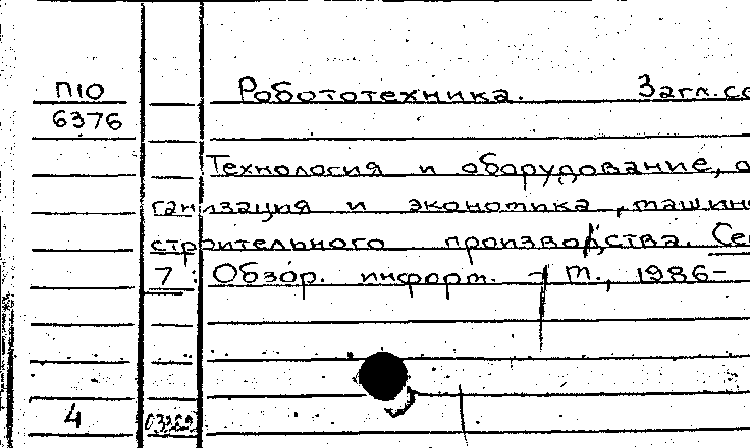 П10 Робототехника. Загл. се
6376
Технология и оборудование, о
ганизация и экономика, машино
строительного производства. Се
7: Обзор. информ. - М., 1986-
4